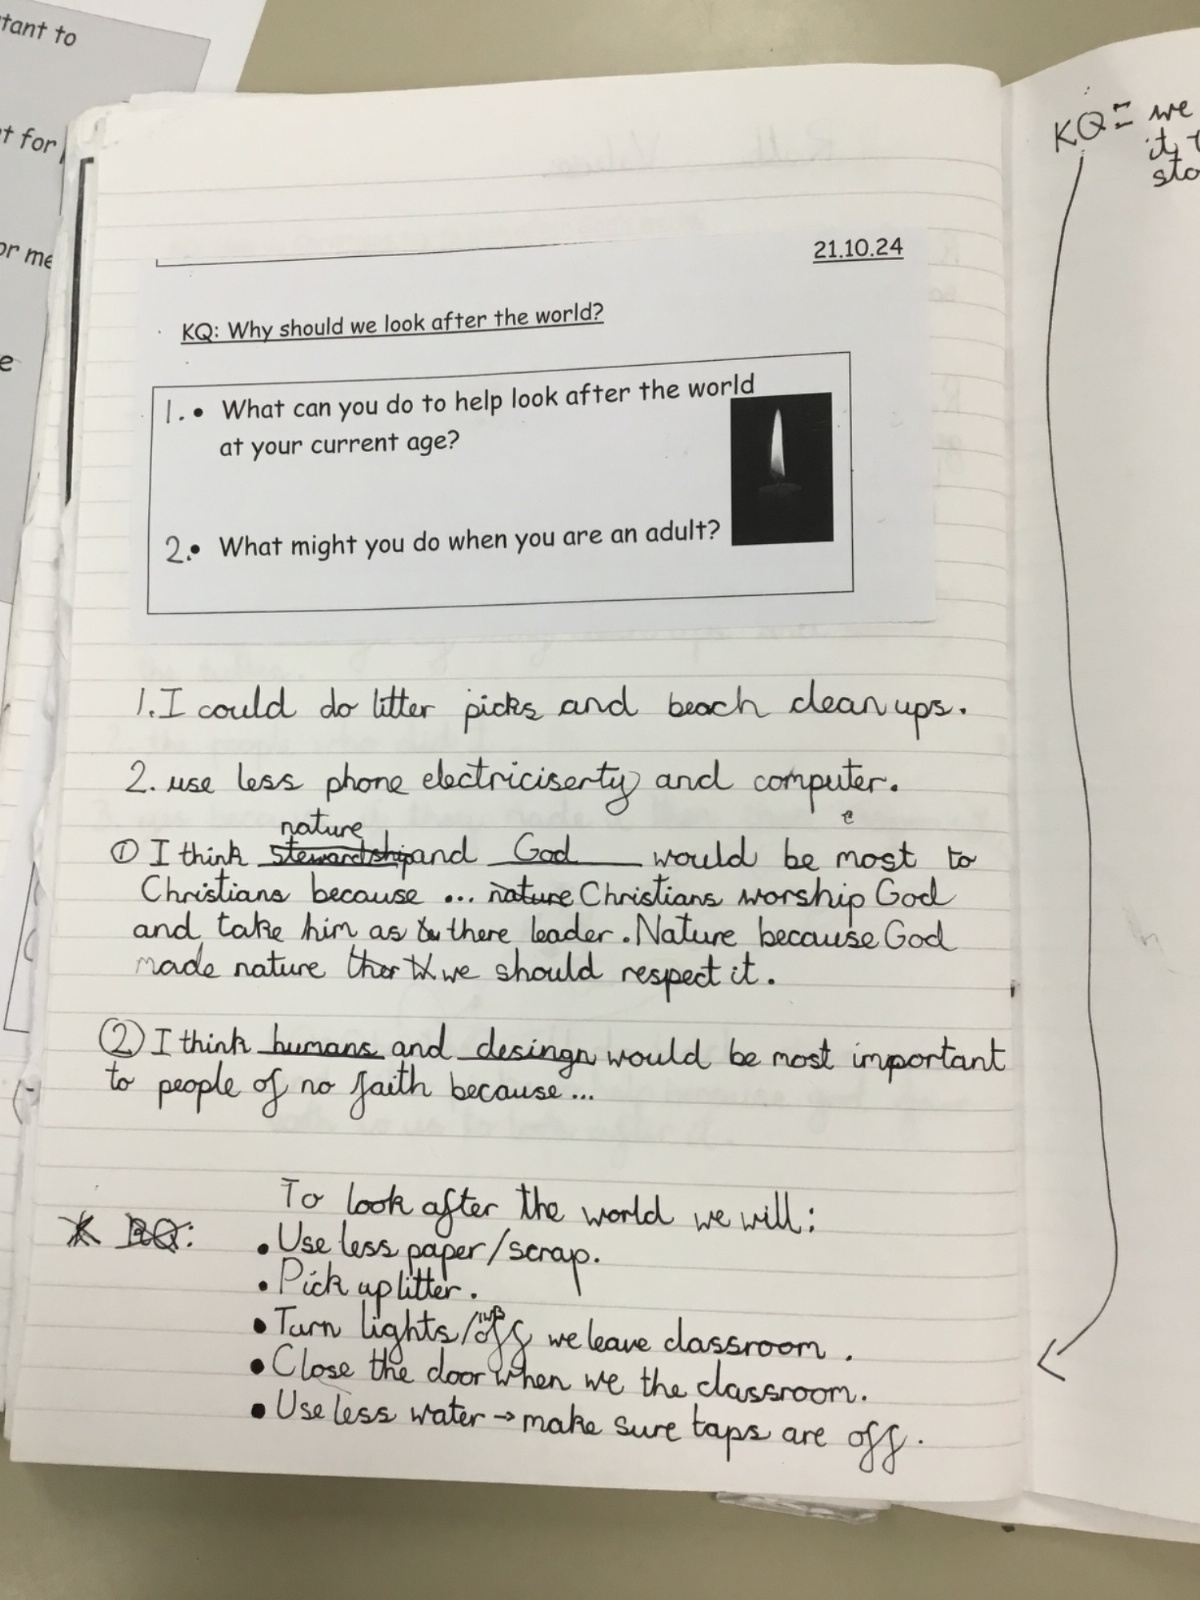 tant to
t for
or me
e
21.10.24
KQ: Why should we look after the world?
1. • What can you do to help look after the world
at your current age?
2. • What might you do when you are an adult?
1. I could do litter picks and beach clean ups.
2. use less phone electriciserty and computer.
e
nature
① I think stewardship and God would be most to
Christians because ... nature Christians worship God
and take him as there leader. Nature because God
made nature we should respect it.
② I think humans and desingn would be most important
to people of no faith because...
To look after the world we will:
RQ: • Use less paper/scrap.
• Pick up litter.
• Turn lights/off we leave classroom.
• Close the door when we the classroom.
• Use less water → make sure taps are off.
KQ = we
it, t
sto